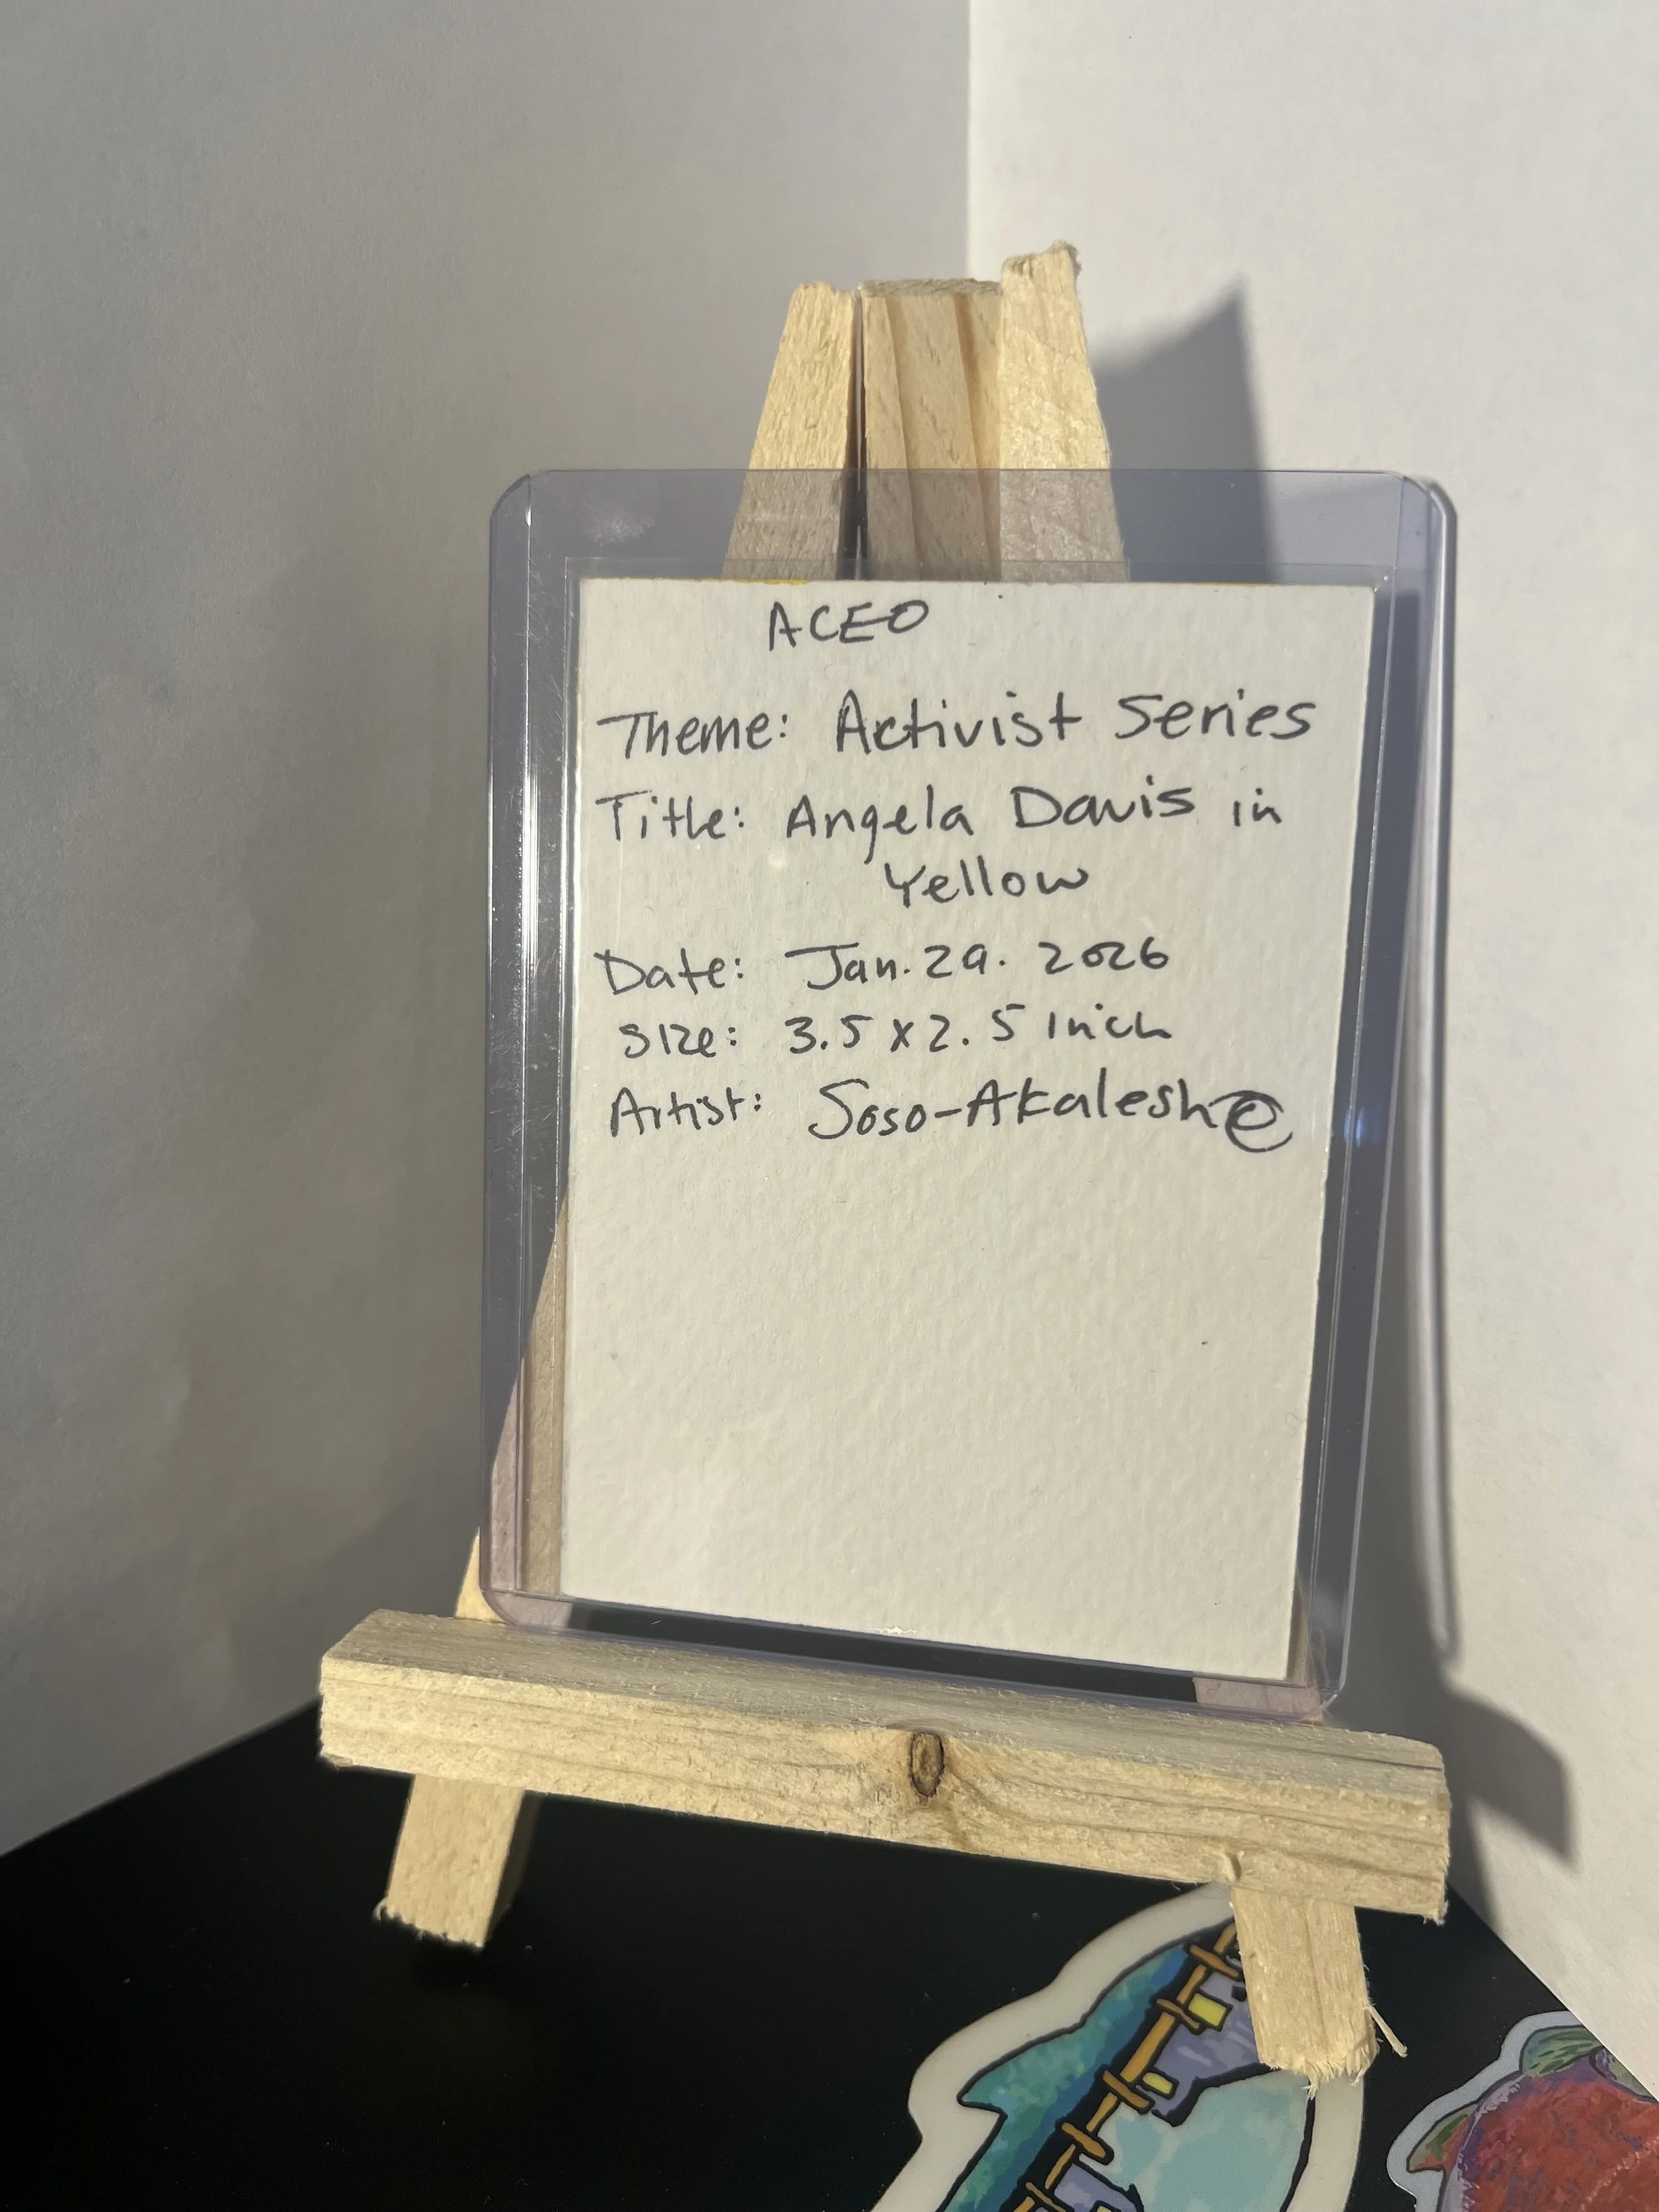 ACEO
Theme: Activist Series
Title: Angela Davis in
Yellow
Date: Jan. 29. 2026
Size: 3.5 x 2.5 inch
Artist: Soso-Akaleshe